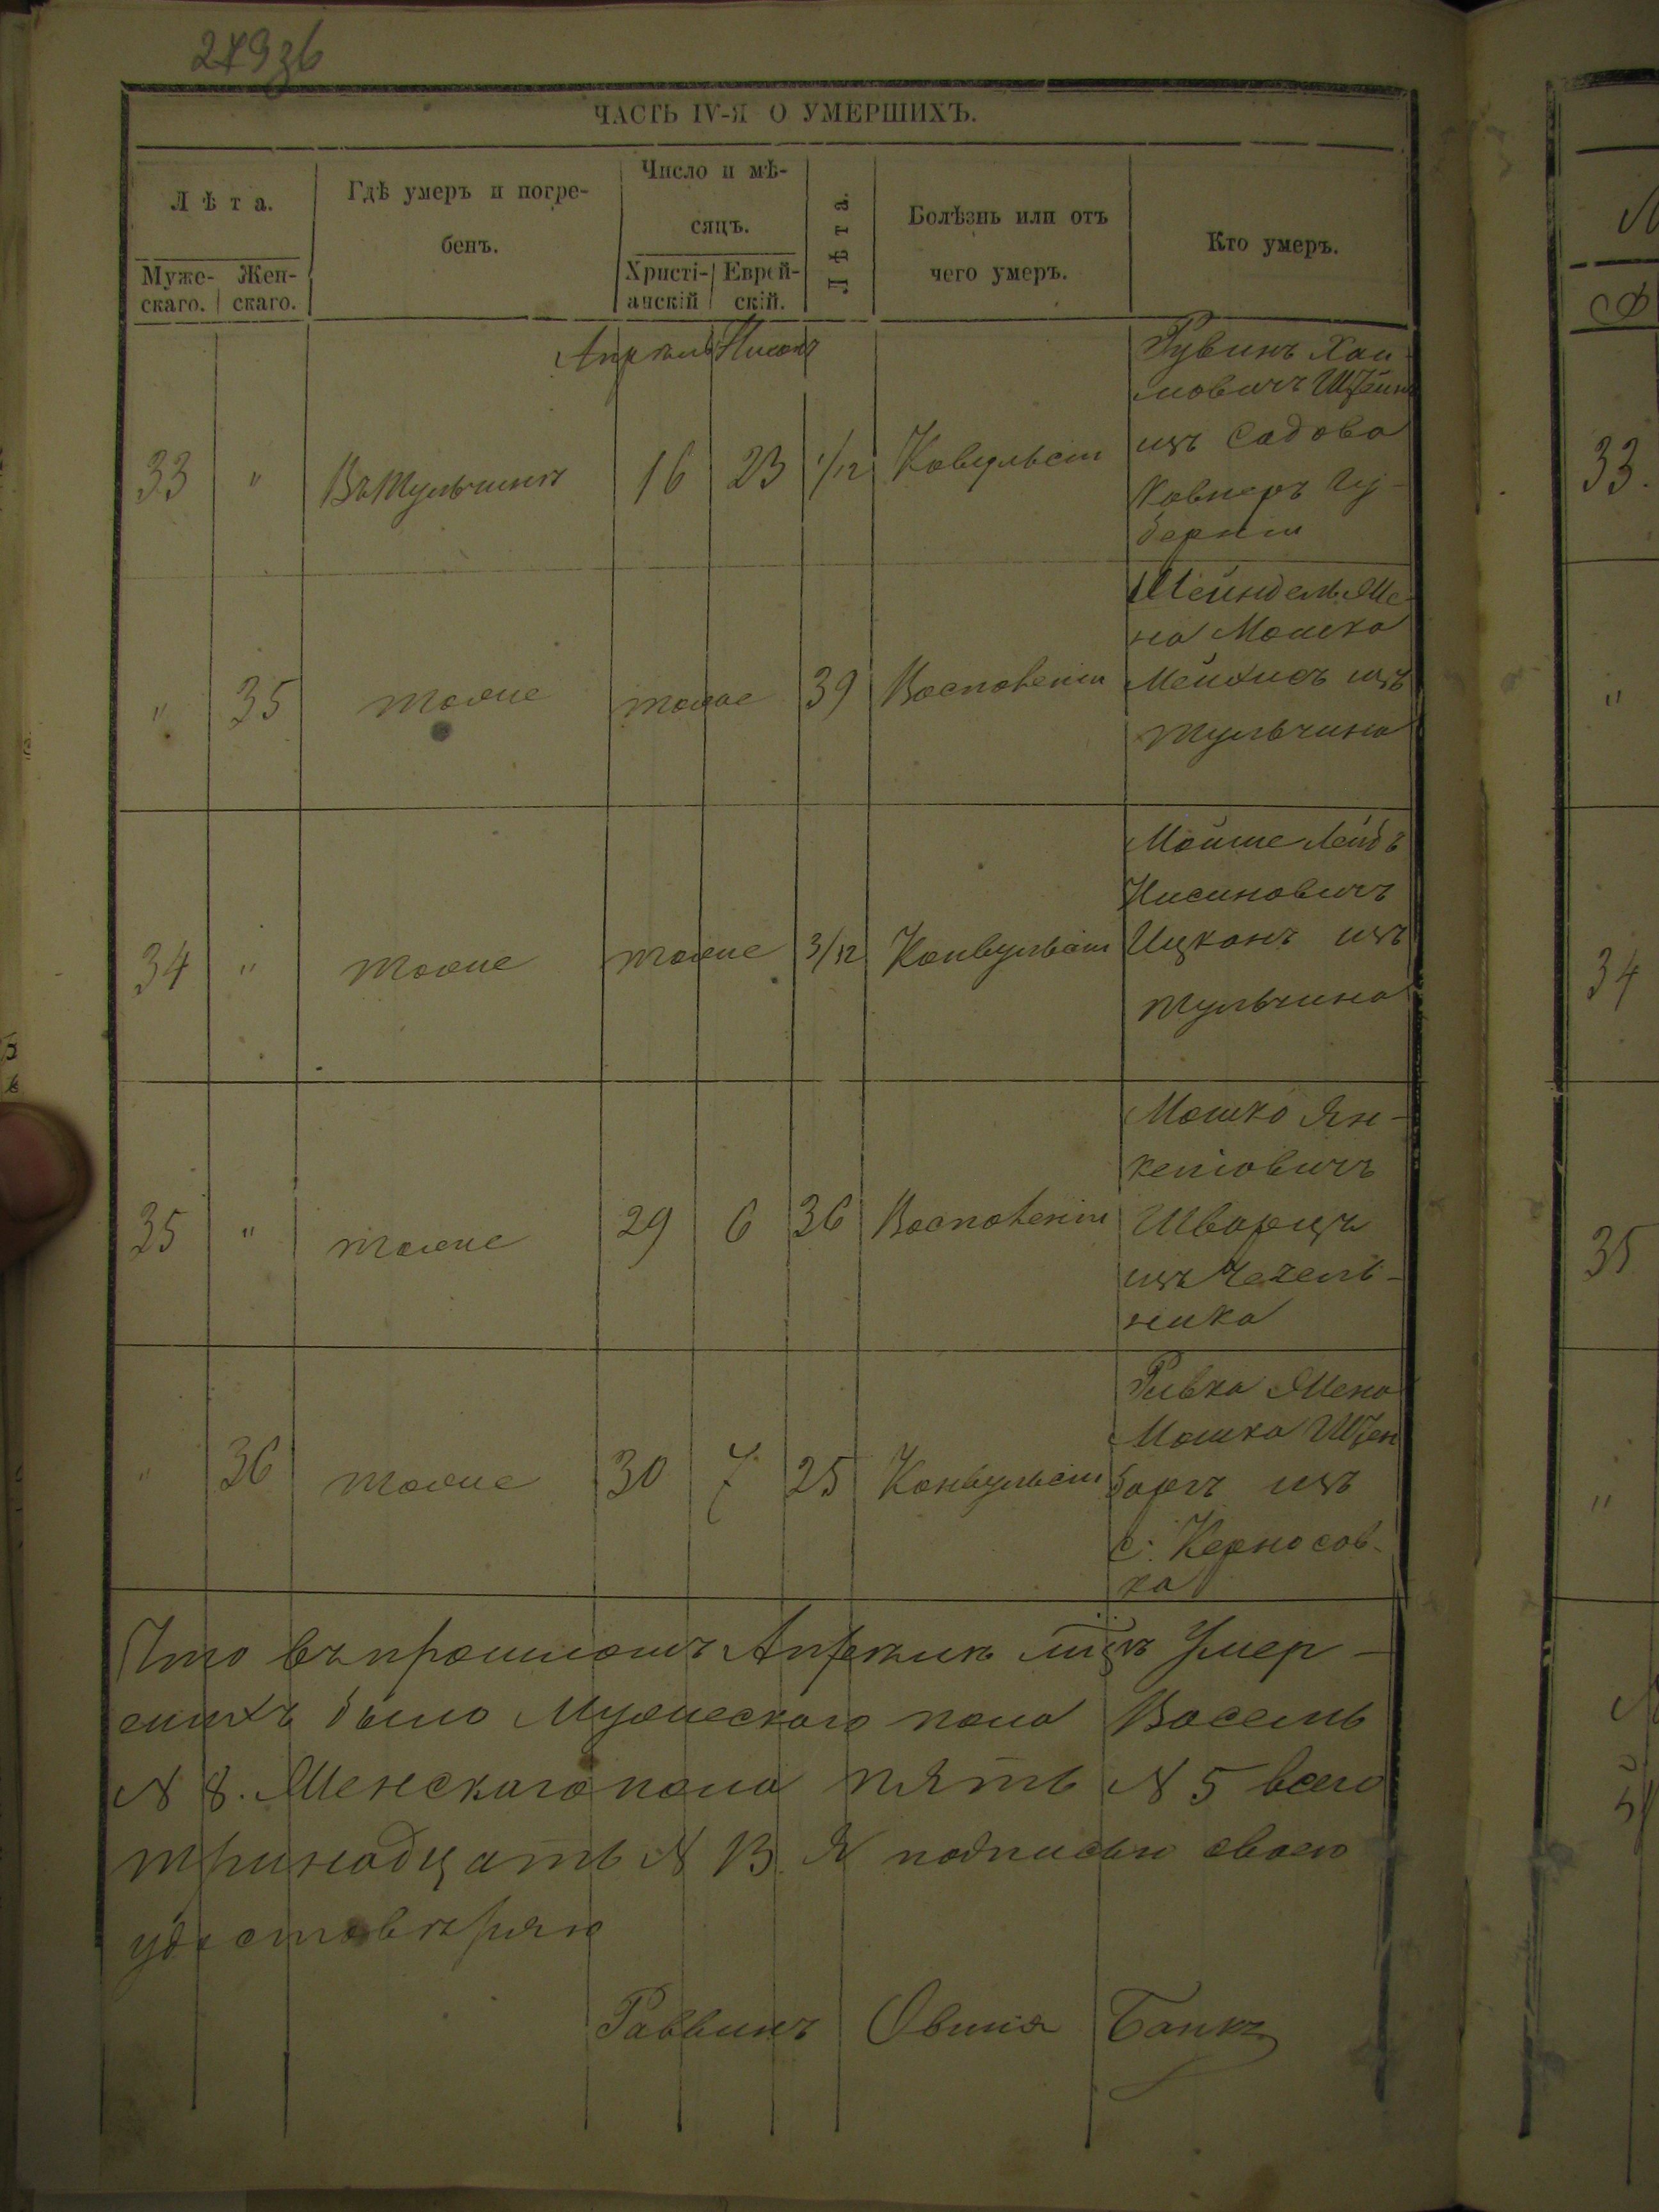 279зб
ЧАСТЬ IV-Я О УМЕРШИХЪ.
Лѣта.
Муже-
скаго.
Жен-
скаго.
Гдѣ умеръ и погре-
бенъ.
Число и мѣ-
сяцъ.
Христі-
анскій
Еврей-
скій.
Лѣта.
Болѣзнь или отъ
чего умеръ.
Кто умеръ.
Апрѣль Нисонъ
33 " Въ Тульчинѣ 16 23 1/12
Рувинъ Хаи-
мовичъ
изъ Садова
Ковнеръ Гу-
берніи
" 35 тоже тоже 39 Воспаленіи
Шейндель Же-
на Мошка
Мейхисъ изъ
Тульчина
34 " тоже тоже 3/12 Конвульсіи
Мойше Лейбъ
Нисиновичъ
Ицканъ изъ
Тульчина
35 " тоже 29 6 36 Воспаленіи
Мошко Ян-
келіовичъ
Шварцъ
изъ Чечель-
ника
" 36 тоже 30 7 25 Конвульсіи
Ривка Жена
Мошка Штен
баргъ изъ
с. Керносов-
ка
Что въ прошломъ Апрѣлѣ мцѣ Умер-
шихъ было Мужескаго пола Восемь
N 8. Женскаго пола пять N 5 всего
тринадцать N 13. Я подписью своею
удостовѣряю
Раввинъ Овшія Банкъ
33.
"
34
35
"